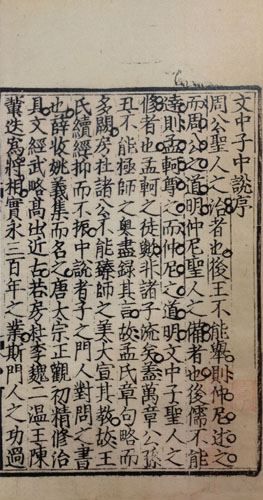 文中子中說序
周公聖人之治者也後王不能舉則仲尼述之
而周公之道明仲尼聖人之備者也後儒不能
達則孟軻尊之而仲尼之道明文中子聖人之
修者也孟軻之徒歟非諸子流矣蓋萬章公孫
丑不能極師之奧盡録其言故孟氏章句略而
多闕房杜諸公不能臻師之美大宣其教故王
氏續經抑而不振中說者子之門人對問之書
也薛收姚義集而名之唐太宗正觀初精修治
具文經武略高出近古若房杜李魏二温王陳
輩迭爲將相實永三百年之業斯門人之功過